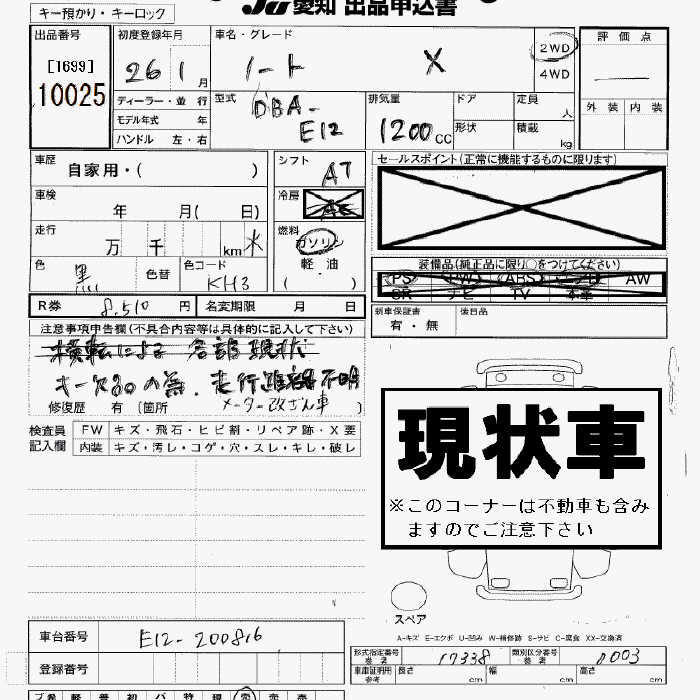 JU 愛知 出品申込書
キー預かり・キーロック
出品番号
[1699]
10025
初度登録年月
26 1 月
ディーラー・並 行
モデル年式 年
ハンドル 左・右
車名・グレード
ノート X
2WD
4WD
型式
DBA-
E12
排気量
1200 CC
ドア
形状
定員
人
積載
kg
評価点
外装 内装
車歴
自家用・( )
車検
年 月( 日)
走行
万 千 km
色
黒
色替
色コード
KH3
シフト
AT
冷房
AC
燃料
ガソリン
軽・油
( )
セールスポイント(正常に機能するものに限ります)
装備品(純正品に限り○をつけてください)
PS PW ABS AW
SR ナビ TV 本革
R券 8,510 円
名変期限 月 日
新車保証書
有・無
後日品
注意事項申告欄(不具合内容等は具体的に記入して下さい)
横転による 現状
の為、走行 不明
修復歴 有 (箇所 メーター改ざん車 )
検査員
記入欄
FW キズ・飛石・ヒビ割・リペア跡・X要
内装 キズ・汚レ・コゲ・穴・スレ・キレ・破レ
現状車
※このコーナーは不動車も含み
ますのでご注意下さい
スペア
A-キズ E-エクボ U-凹み W-補修跡 S-サビ C-腐食 XX-交換済
車台番号 E12-200816
登録番号
形式指定番号 17338
類別区分番号 0003
車庫証明用
参考
長さ cm
幅 cm
高さ cm